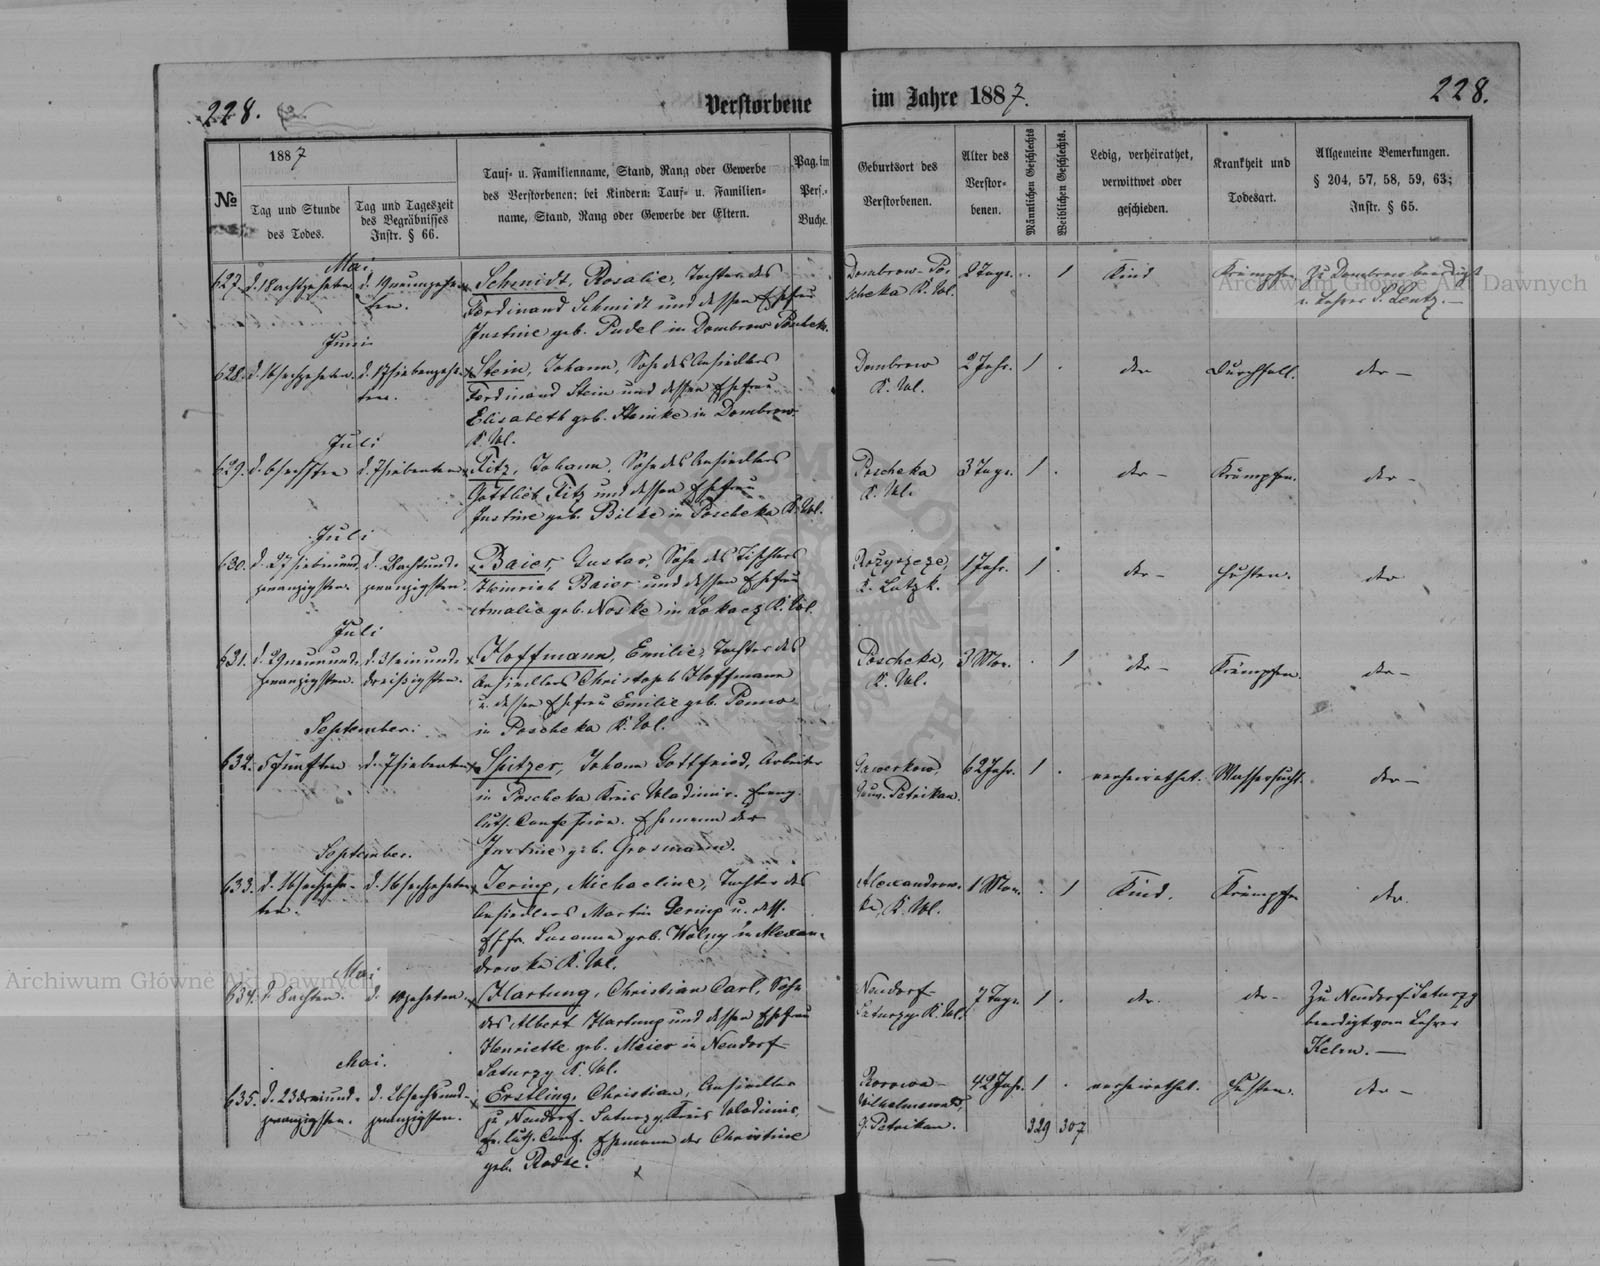 228.
Verstorbene im Jahre 1887.
228.
№
1887
Tag und Stunde
des Todes.
Tag und Tageszeit
des Begräbnisses
Instr. § 66.
Tauf- u. Familienname, Stand, Rang oder Gewerbe
des Verstorbenen; bei Kindern: Tauf- u. Familien-
name, Stand, Rang oder Gewerbe der Eltern.
Pag. im
Pers.-
Buche.
Geburtsort des
Verstorbenen.
Alter des
Verstor-
benen.
Männlichen Geschlechts
Weiblichen Geschlechts.
Ledig, verheirathet,
verwittwet oder
geschieden.
Krankheit und
Todesart.
Allgemeine Bemerkungen.
§ 204, 57, 58, 59, 63;
Instr. § 65.
Mai
627. d. 18 achtzehnten d. 19 neunzehn-
ten.
Schmidt, Rosalie, Tochter des
Ferdinand Schmidt und dessen Ehefrau
Justine geb. Pudel in Dombrow-Poscheka.
Dombrow-Po-
scheka K. Wl.
2 Tage. 1 Kind Krämpfen
Zu Dombrow beerdigt
v. Lehrer S. Lentz.—
Juni
628. d. 16 sechzehnten. d. 17 siebenzehn-
ten.
Stein, Johann, Sohn des Ansiedlers
Ferdinand Stein und dessen Ehefrau
Elisabeth geb. Steinke in Dombrow
K. Wl.
Dombrow
K. Wl.
2 Jahr. 1 . dto Durchfall. dto —
Juli
629. d. 6 sechsten d. 7 siebenten
Fitz, Johann, Sohn des Ansiedlers
Gottlieb Fitz und dessen Ehefrau
Justine geb. Bilke in Poscheka K. Wl.
Poscheka
K. Wl.
3 Tage. 1 . dto — Krämpfen. dto —
Juli
630. d. 27 siebenund-
zwanzigsten.
d. 28 achtund-
zwanzigsten.
Baier, Gustav, Sohn des Tischlers
Heinrich Baier und dessen Ehefrau
Amalie geb. Noske in Lokacz K. Wl.
Rożyszcze,
K. Lutzk.
1 Jahr. 1 . dto — Husten. dto
Juli
631. d. 29 neunund-
zwanzigsten.
d. 31 einund-
dreißigsten.
Hoffmann, Emilie, Tochter des
Ansiedlers Christoph Hoffmann
u. dessen Ehefrau Emilie geb. Ponno
in Poscheka K. Wl.
Poscheka,
K. Wl.
3 Mon. . 1 dto — Krämpfen dto —
September.
632. 5 fünften d. 7 siebenten
Spitzer, Johann Gottfried, Arbeiter
in Poscheka Kreis Wladimir. Evang.
luth. Confession. Ehemann der
Justine geb. Grosmann.
Gaworkow,
Gouv. Petrikau.
62 Jahr. 1 . verheirathet. Wassersucht dto —
September.
633. d. 16 sechzehn-
ten.
d. 16 sechzehnten
Jering, Michaeline, Tochter des
Ansiedlers Martin Gering u. dess.
Ehefr. Susanna geb. Wolny in Alexan-
drowka K. Wl.
Alexandrow-
ka, K. Wl.
1 Mon. . 1 Kind. Krämpfen dto.
Mai
634. d. 8 achten. d. 10 zehnten
Hartung, Christian Carl, Sohn
des Albert Hartung und dessen Ehefrau
Henriette geb. Meier in Neudorf
Saturzy K. Wl.
Neudorf-
Saturzy K. Wl.
7 Tage. 1 . dto. dto —
Zu Neudorf-Saturzy
beerdigt vom Lehrer
Kelm. —
Mai.
635. d. 23 dreiund-
zwanzigsten.
d. 26 sechsund-
zwanzigsten.
Erstling, Christian, Ansiedler
zu Neudorf-Saturzy, Kreis Wladimir,
ev. luth. Conf. Ehemann der Christine
geb. Radke.
Wilhelmswald,
G. Petrikau.
42 Jahr. 1 . verheirathet. Husten. dto —
329 307
Archiwum Główne Akt Dawnych
Archiwum Główne Akt Dawnych